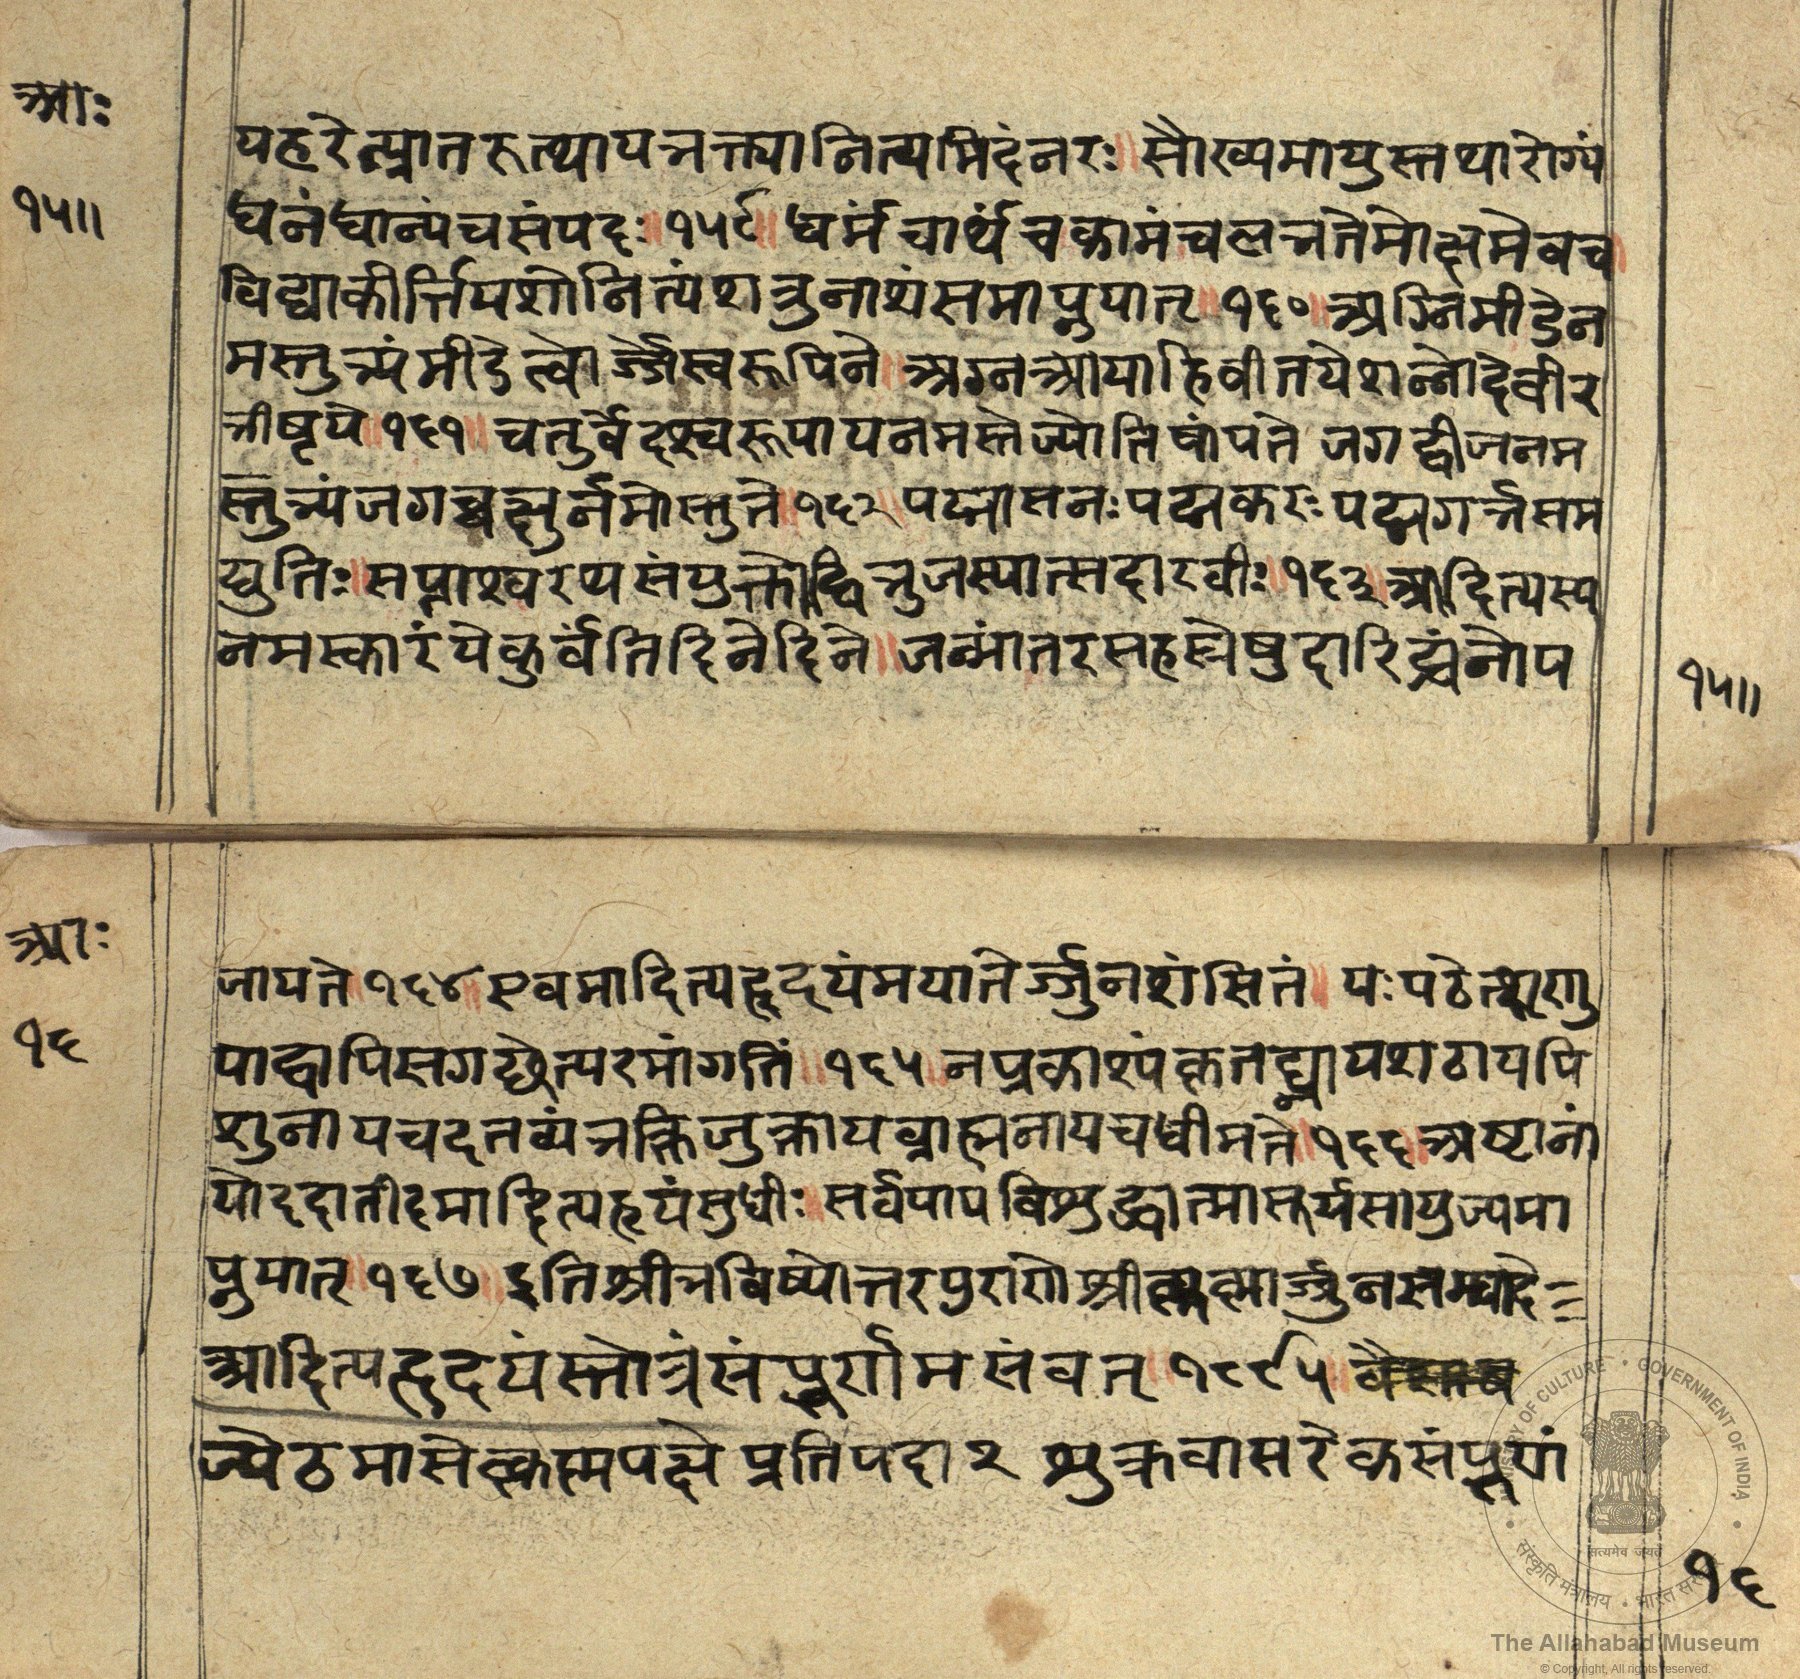 आः
१५॥
पहरेत्प्रातरूत्थायभक्त्यानित्यमिदंनरः॥सौख्यमायुस्तथारोग्यं
धनंधान्यंचसंपदः॥१५९॥धर्मंचार्थंचकामंचलभतेमोक्षमेवच॥
विद्याकीर्त्तियशोनित्यंशत्रुनाशंसमाप्नुयात्॥१६०॥अग्निमीडेन
मस्तुभ्यंमीडेत्वोर्ज्जेस्वरूपिने॥अग्नआयाहिवीतयेशन्नोदेवीर
भीष्टये॥१६१॥चतुर्वेदश्वरूपायनमस्तेज्योतिषांपते जगद्बीजनम
स्तुभ्यंजगच्चक्षुर्नमोस्तुते॥१६२॥पद्मासनःपद्मकरःपद्मगर्भसम
द्युतिः॥सप्ताश्वरथसंयुक्तोद्विभुजस्यात्सदारवीः॥१६३॥आदित्यस्य
नमस्कारंयेकुर्वंतिदिनेदिने॥जन्मांतरसहस्रेषुदारिद्र्यंनोप
१५॥
आः
१६
जायते॥१६४॥एवमादित्यहृदयंमयातेर्ज्जुनशंसितं॥यःपठेत्शृणु
याद्वापिसगच्छेत्परमांगतिं॥१६५॥नप्रकाश्यंकृतघ्नायशठायपि
शुनायचदतव्यंभक्तिजुक्तायब्राह्मनायचधीमते॥१६६॥अष्टानां
योददातीदमादित्यहृयंसुधीः॥सर्वपापविशुद्धात्मास्तर्यसायुज्यमा
प्नुयात्॥१६७॥इतिश्रीभविष्योत्तरपुराणेश्रीकृष्णार्ज्जुनसम्वादे
आदित्यहृदयंस्तोत्रंसंपूर्णमसंवत्॥१८९५॥
ज्येठमासेकृष्मपक्षे प्रतिपदा२ शुक्रवासरेकसंपूर्णं
१६
MINISTRY OF CULTURE • GOVERNMENT OF INDIA
सत्यमेव जयते
संस्कृति मंत्रालय • भारत सरकार
The Allahabad Museum
© Copyright, All rights reserved.